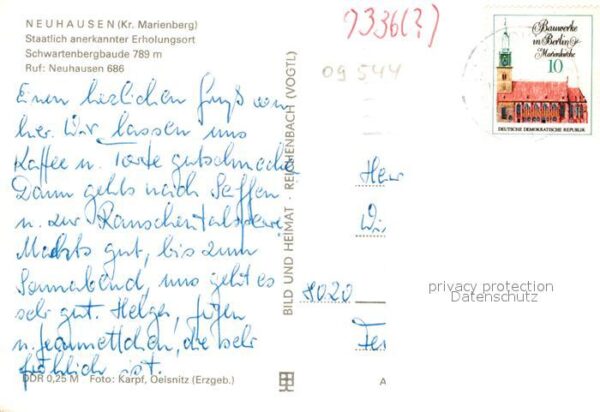 NEUHAUSEN (Kr. Marienberg)
Staatlich anerkannter Erholungsort
Schwartenbergbaude 789 m
Ruf: Neuhausen 686
Einen herzlichen Gruß von
hier. Wir lassen uns
Kaffee u. Torte gutschmecken
Dann gehts nach Seiffen
u. zur Rauschentalsperre
Machts gut, bis zum
Sonnabend, uns geht es
sehr gut. Helga, Jürgen
u. Jeannettchen, die sehr
fröhlich ist.
DDR 0,25 M Foto: Karpf, Oelsnitz (Erzgeb.)
BILD UND HEIMAT · REICHENBACH (VOGTL)
9336(?)
09 544
Bauwerke
in Berlin
Marienkirche
10
DEUTSCHE DEMOKRATISCHE REPUBLIK
8020
privacy protection
Datenschutz
A